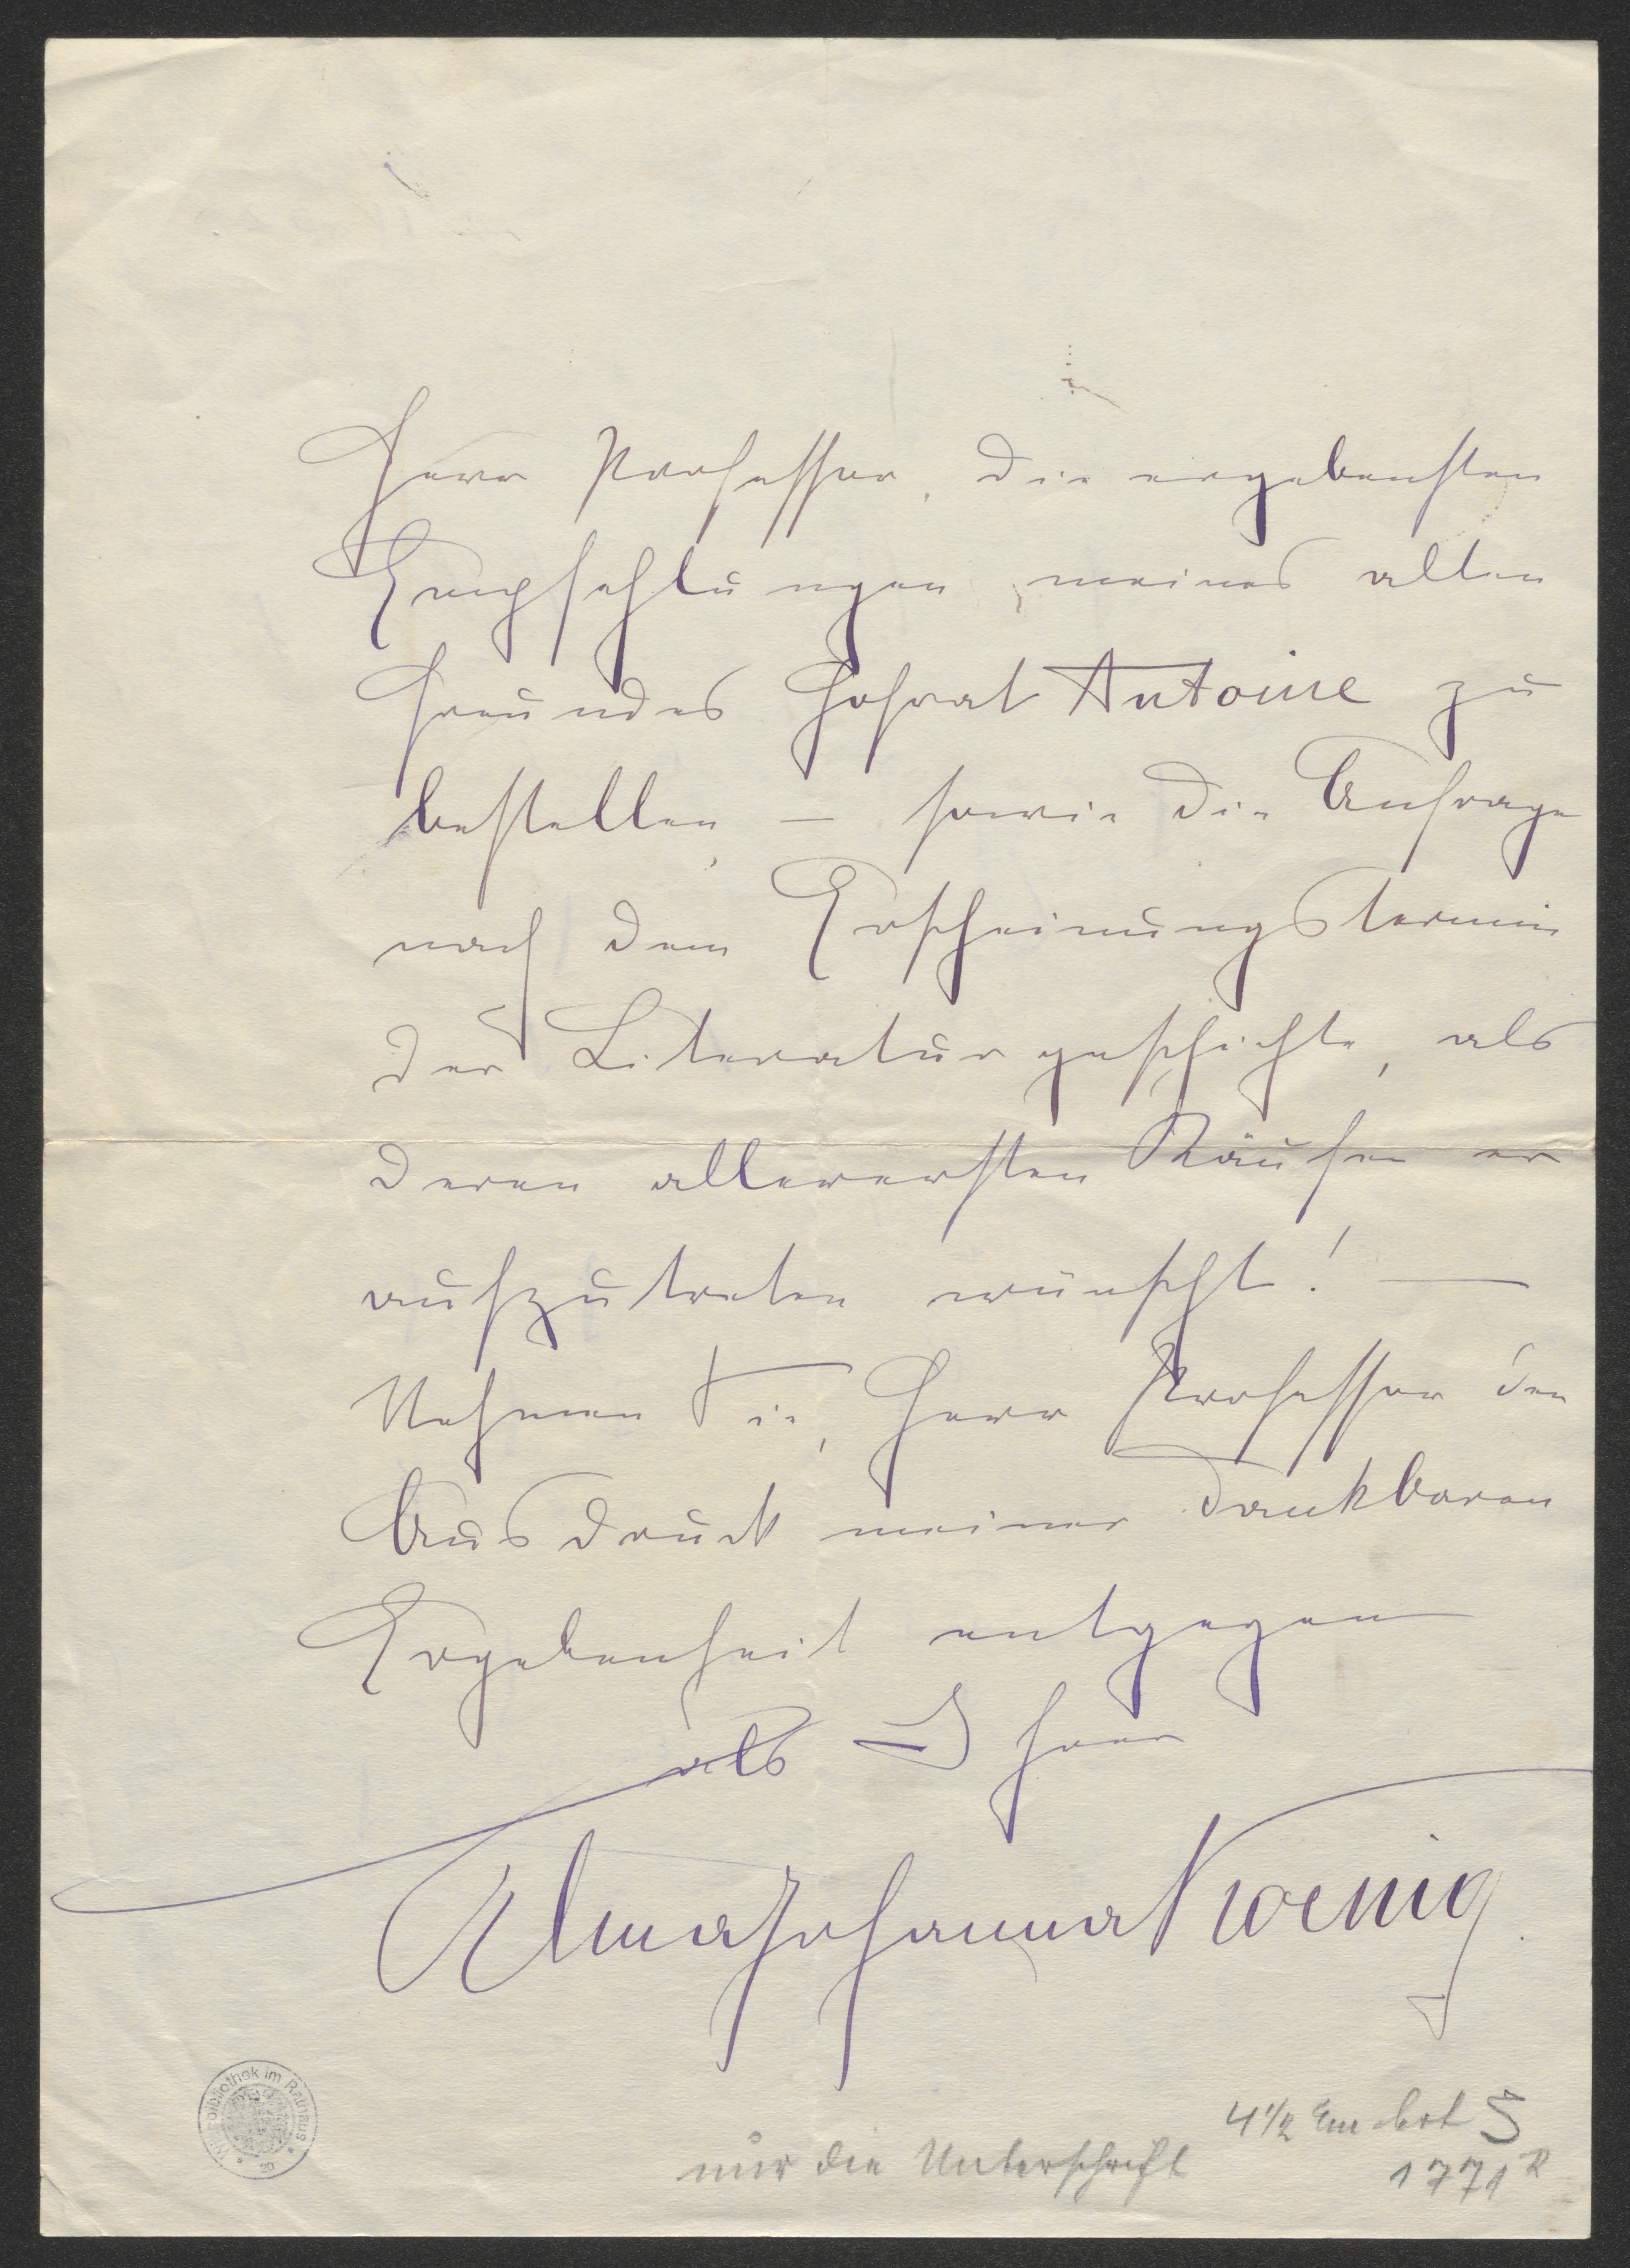 Herr Professor, die ergebensten
Empfehlungen meines alten
Freundes Hofrat Antoine zu
bestellen, – sowie die Anfrage
nach dem Erscheinungstermin
der Literaturgeschichte, als
deren allerersten Käufer er
aufzutreten wünscht! —
Nehmen Sie, Herr Professor den
Ausdruck meiner dankbaren
Ergebenheit entgegen
als Ihre
Alma Johanna Koenig.
4 1/2 cm brt S
nur die Unterschrift
1771 R
bibliothek im Rathaus